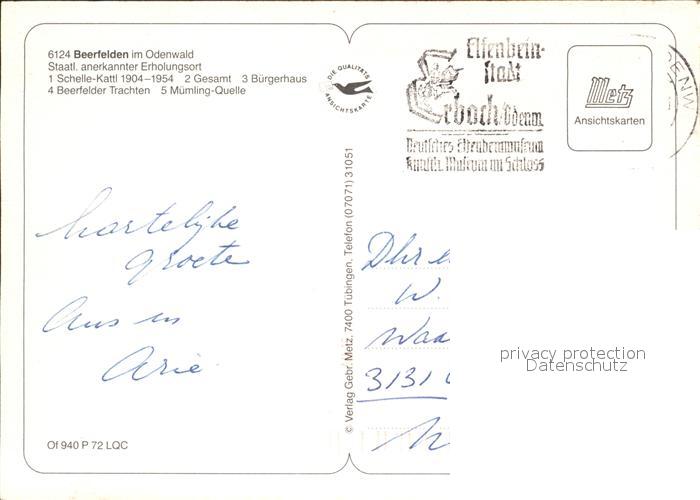 6124 Beerfelden im Odenwald
Staatl. anerkannter Erholungsort
1 Schelle-Kattl 1904–1954 2 Gesamt 3 Bürgerhaus
4 Beerfelder Trachten 5 Mümling-Quelle
DIE QUALITÄTS
ANSICHTSKARTE
Elfenbein-
stadt
Erbach/Odenw.
Deutsches Elfenbeinmuseum
Museum im Schloss
ODENW
Metz
Ansichtskarten
hartelijke
groete
Aus en
Arie
© Verlag Gebr. Metz, 7400 Tübingen, Telefon (07071) 31051
Dhr e
W.
Waa
3131
privacy protection
Datenschutz
Of 940 P 72 LQC